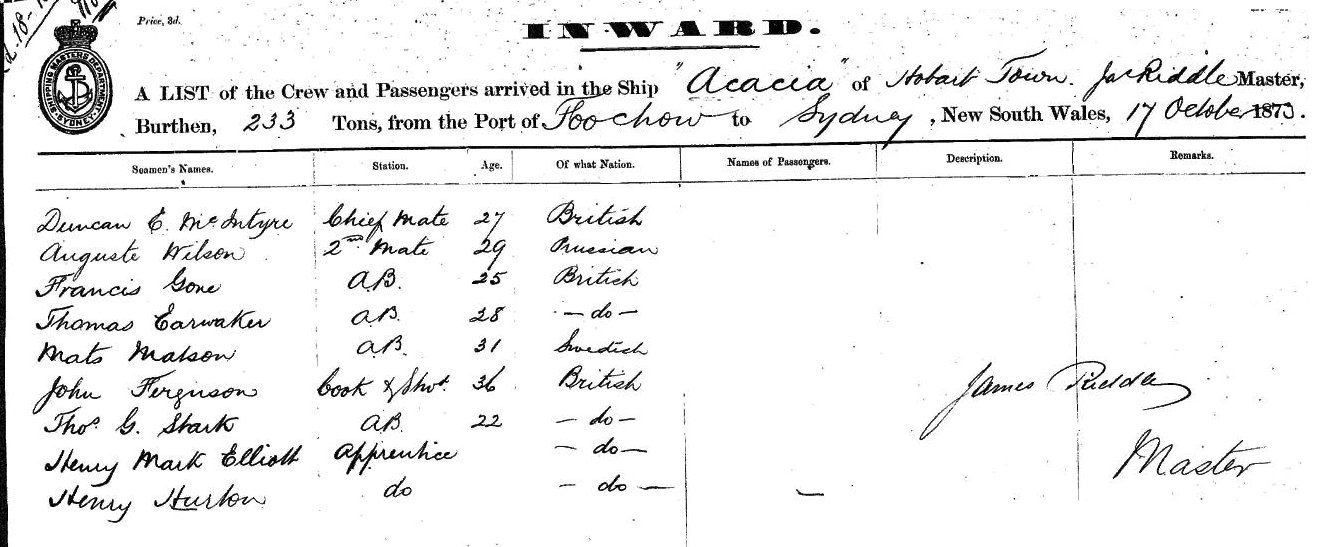 Price, 3d.
INWARD.
SHIPPING MASTERS DEPARTMENT SYDNEY
A LIST of the Crew and Passengers arrived in the Ship "Acacia" of Hobart Town. Jas Riddle Master,
Burthen, 233 Tons, from the Port of Foo chow to Sydney, New South Wales, 17 October 1873.
Seamen's Names. Station. Age. Of what Nation. Names of Passengers. Description. Remarks.
Duncan E. McIntyre Chief Mate 27 British
Auguste Wilson 2nd Mate 29 Prussian
Francis Gone A.B. 25 British
Thomas Earwaker A.B. 28 - do -
Mats Matson A.B. 31 Swedish
John Ferguson Cook & Stwd. 36 British
Thos. G. Stark A.B. 22 - do -
James Riddle
Henry Mark Elliott Apprentice - do -
Master
Henry Hurton do - do - -